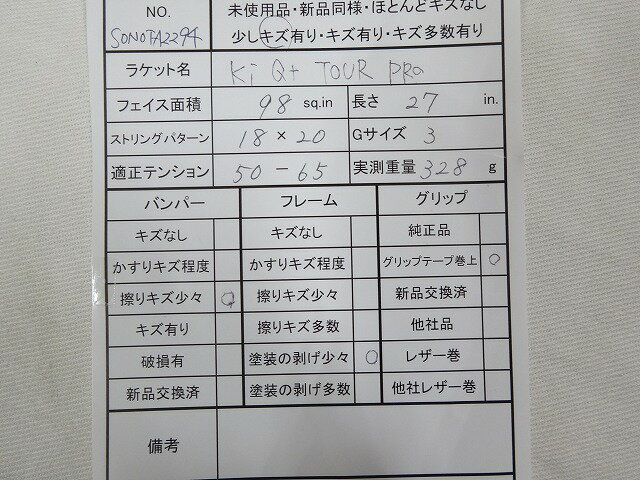 NO. 未使用品・新品同様・ほとんどキズなし
SONOTA2294 少しキズ有り・キズ有り・キズ多数有り
ラケット名 Ki Q+ TOUR PRO
フェイス面積 98 sq.in 長さ 27 in.
ストリングパターン 18 × 20 Gサイズ 3
適正テンション 50 - 65 実測重量 328 g
バンパー フレーム グリップ
キズなし キズなし 純正品
かすりキズ程度 かすりキズ程度 グリップテープ巻上 ○
擦りキズ少々 ○ 擦りキズ少々 新品交換済
キズ有り 擦りキズ多数 他社品
破損有 塗装の剥げ少々 ○ レザー巻
新品交換済 塗装の剥げ多数 他社レザー巻
備考